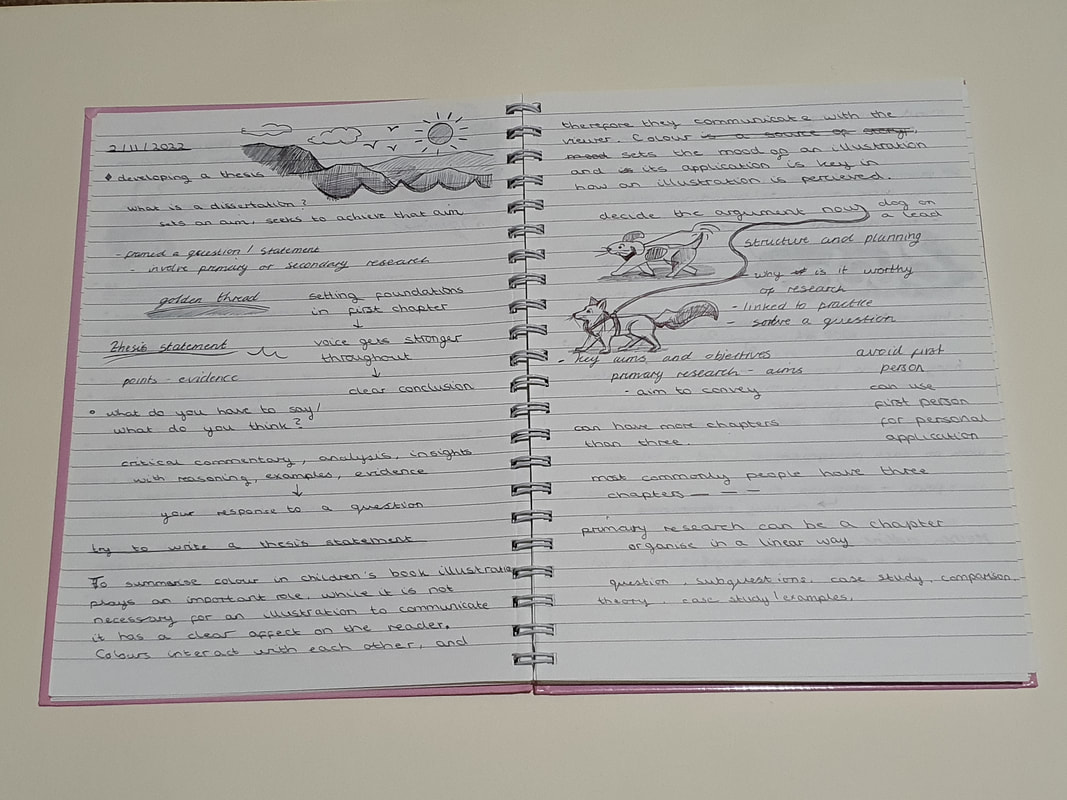 2/11/2022
• developing a thesis
what is a dissertation?
sets an aim, seeks to achieve that aim
- framed a question / statement
- involve primary or secondary research
golden thread
setting foundations
in first chapter
↓
voice gets stronger
throughout
↓
clear conclusion
Thesis statement
points - evidence
• what do you have to say/
what do you think?
critical commentary, analysis, insights
with reasoning, examples, evidence
↓
your response to a question
try to write a thesis statement
To summarise colour in children's book illustration
plays an important role, while it is not
necessary for an illustration to communicate
it has a clear affect on the reader.
Colours interact with each other, and
therefore they communicate with the
viewer. Colour is a source of
mood sets the mood of an illustration
and is its application is key in
how an illustration is percieved.
decide the argument now
dog on
a lead
structure and planning
- why is it worthy
of research
- linked to practice
- solve a question
- key aims and objectives
primary research - aims
- aim to convey
avoid first
person
can use
first person
for personal
application
can have more chapters
than three.
most commonly people have three
chapters — — —
primary research can be a chapter
organise in a linear way
question, subquestions, case study, comparison
theory, case study/examples.